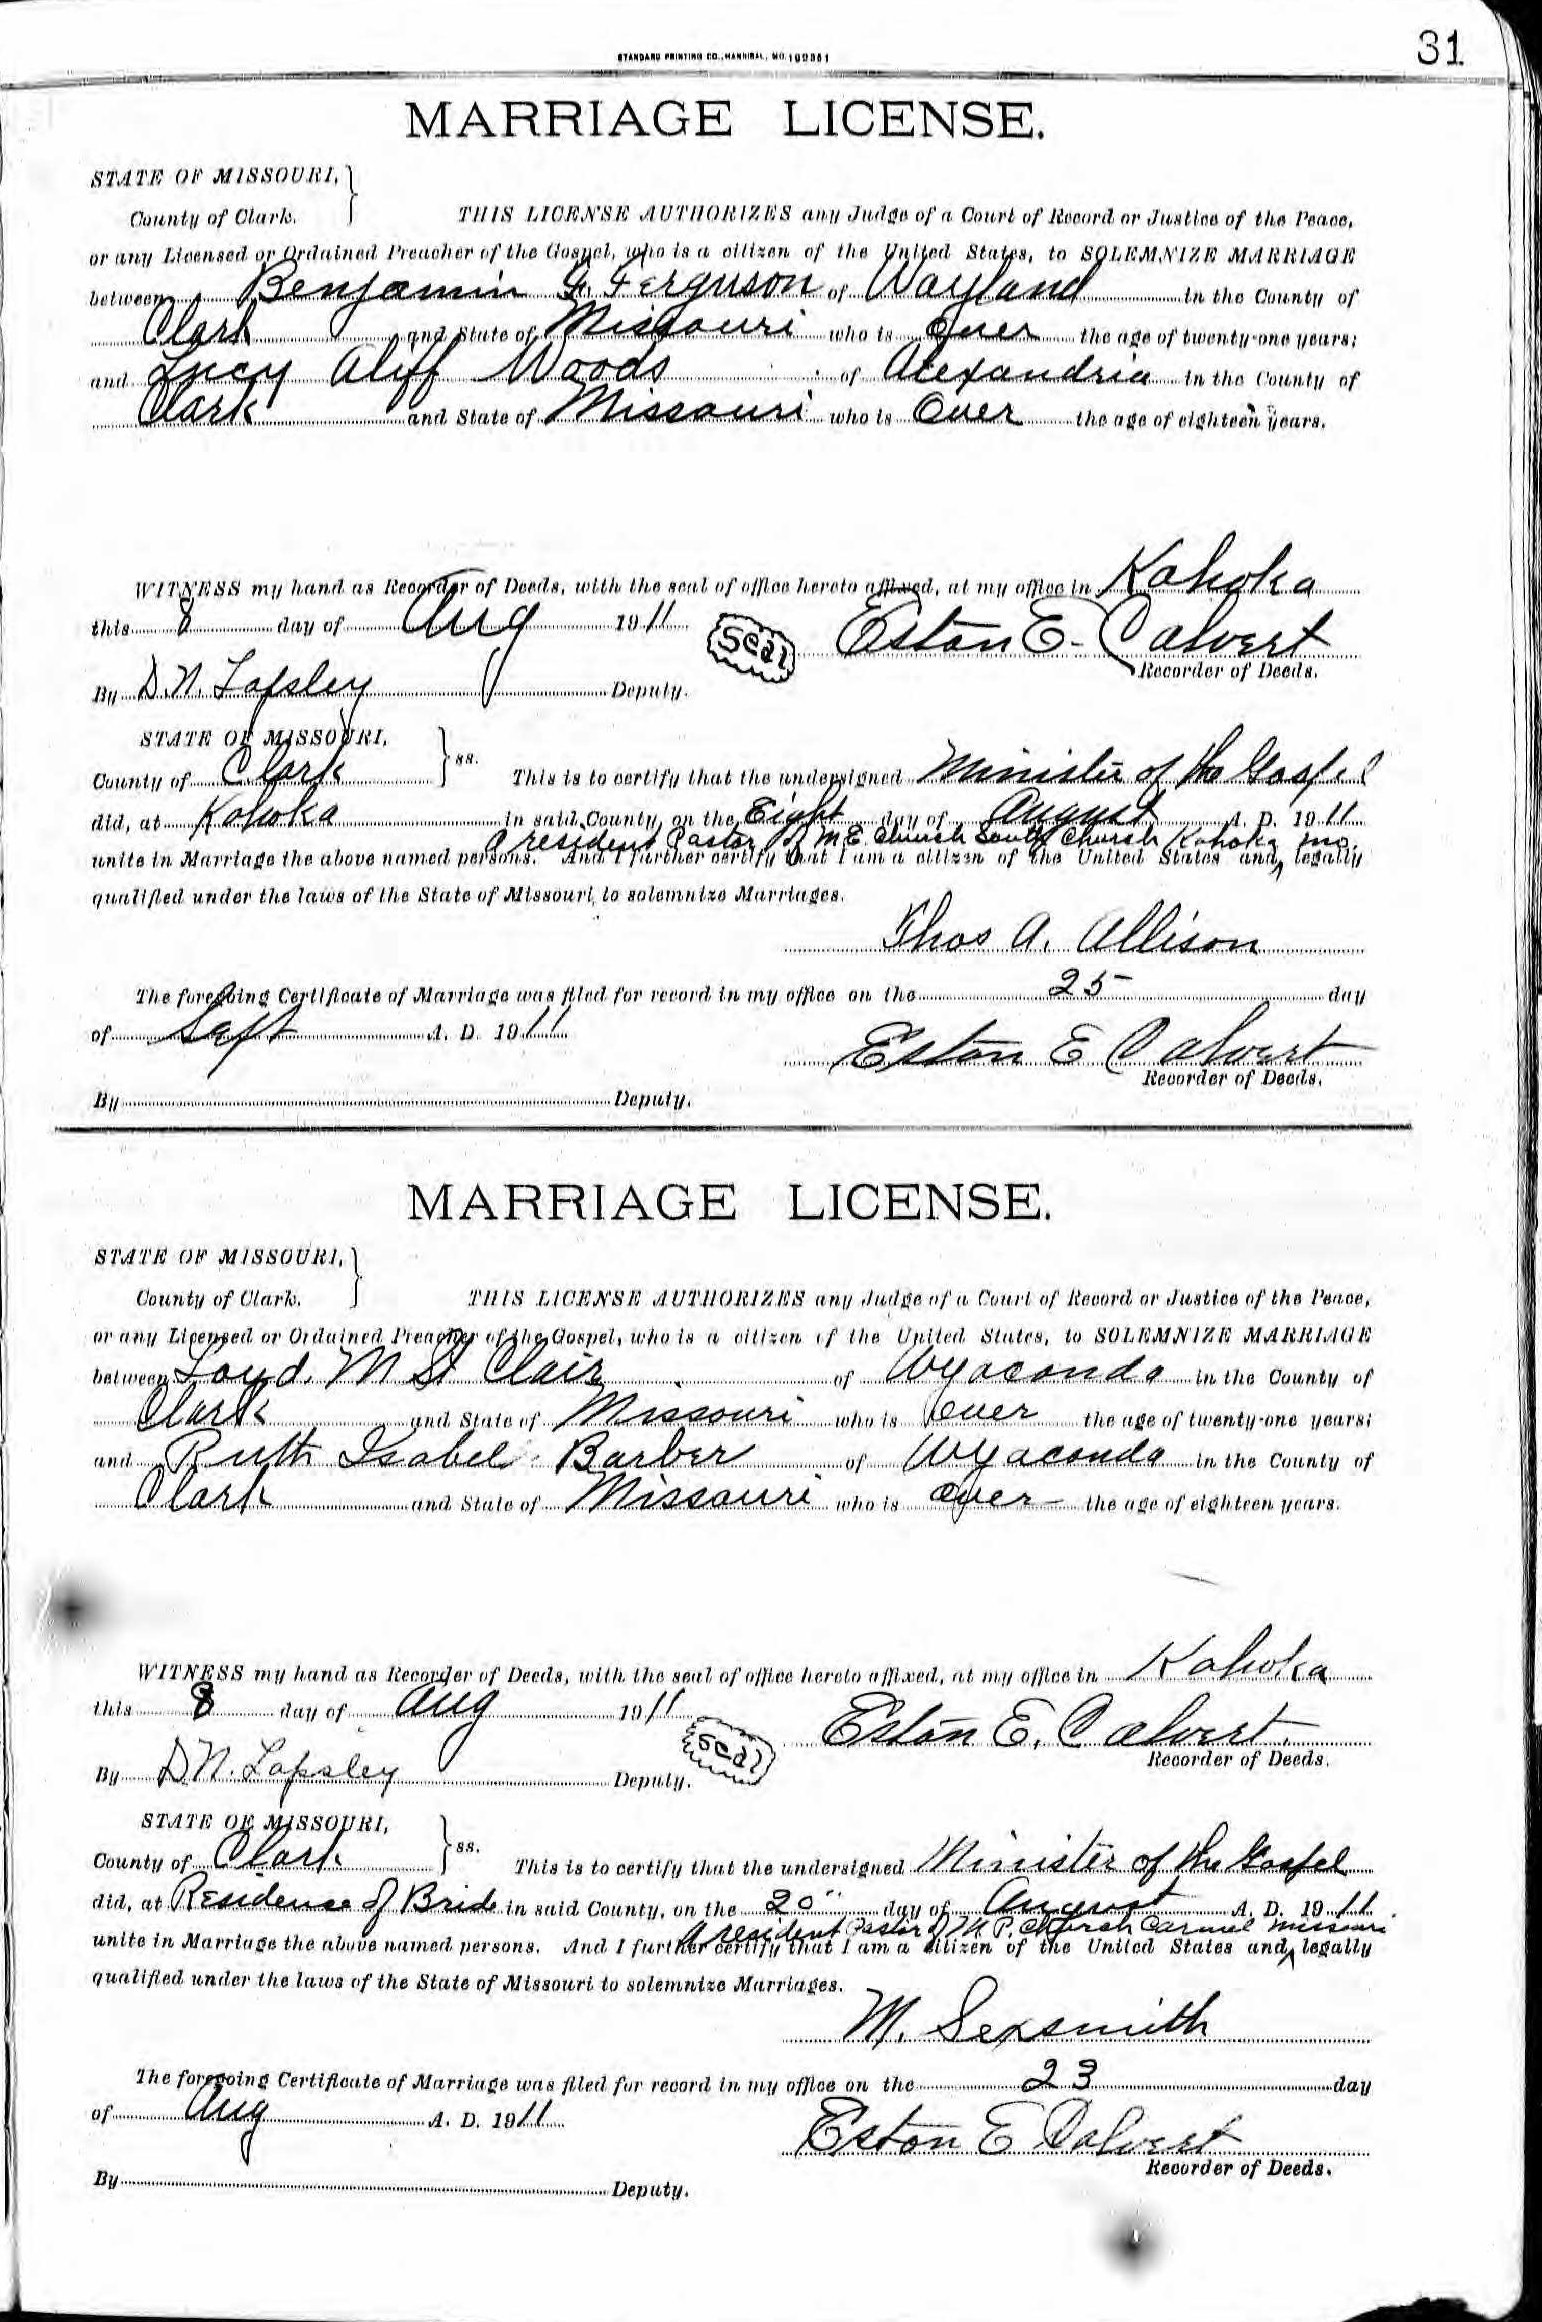 31
STANDARD PRINTING CO., HANNIBAL, MO. 100351
MARRIAGE LICENSE.
STATE OF MISSOURI,
County of Clark.
THIS LICENSE AUTHORIZES any Judge of a Court of Record or Justice of the Peace,
or any Licensed or Ordained Preacher of the Gospel, who is a citizen of the United States, to SOLEMNIZE MARRIAGE
between Benjamin Ferguson of Wayland in the County of
Clark and State of Missouri who is Over the age of twenty-one years;
and Lucy Aliff Woods of Alexandria in the County of
Clark and State of Missouri who is Over the age of eighteen years.
WITNESS my hand as Recorder of Deeds, with the seal of office hereto affixed, at my office in Kahoka
this 8 day of Aug 1911 Seal Eston E. Calvert
Recorder of Deeds.
By D.N. Lapsley Deputy.
STATE OF MISSOURI,
County of Clark ss. This is to certify that the undersigned Minister of the Gospel
did, at Kahoka in said County, on the Eight day of August A. D. 1911
a resident Pastor of M E Church South Church Kahoka Mo.
unite in Marriage the above named persons. And I further certify that I am a citizen of the United States and ‸ legally
qualified under the laws of the State of Missouri, to solemnize Marriages.
Thos A. Allison
The foregoing Certificate of Marriage was filed for record in my office on the 25 day
of Sept A. D. 1911
Eston E Calvert
Recorder of Deeds.
By Deputy.
MARRIAGE LICENSE.
STATE OF MISSOURI,
County of Clark.
THIS LICENSE AUTHORIZES any Judge of a Court of Record or Justice of the Peace,
or any Licensed or Ordained Preacher of the Gospel, who is a citizen of the United States, to SOLEMNIZE MARRIAGE
between Loyd. M St Clair of Wyaconda in the County of
Clark and State of Missouri who is over the age of twenty-one years;
and Ruth Isabel Barber of Wyaconda in the County of
Clark and State of Missouri who is over the age of eighteen years.
WITNESS my hand as Recorder of Deeds, with the seal of office hereto affixed, at my office in Kahoka
this 8 day of Aug 1911 Seal Eston E. Calvert.
Recorder of Deeds.
By D.N. Lapsley Deputy.
STATE OF MISSOURI,
County of Clark ss. This is to certify that the undersigned Minister of the Gospel
did, at Residence of Bride in said County, on the 20" day of August A. D. 1911
A resident Pastor of M. P. Church Carmel Missouri
unite in Marriage the above named persons. And I further certify that I am a citizen of the United States and ‸ legally
qualified under the laws of the State of Missouri to solemnize Marriages.
M. Sexsmith
The foregoing Certificate of Marriage was filed for record in my office on the 23 day
of Aug A. D. 1911
Eston E Calvert
Recorder of Deeds.
By Deputy.